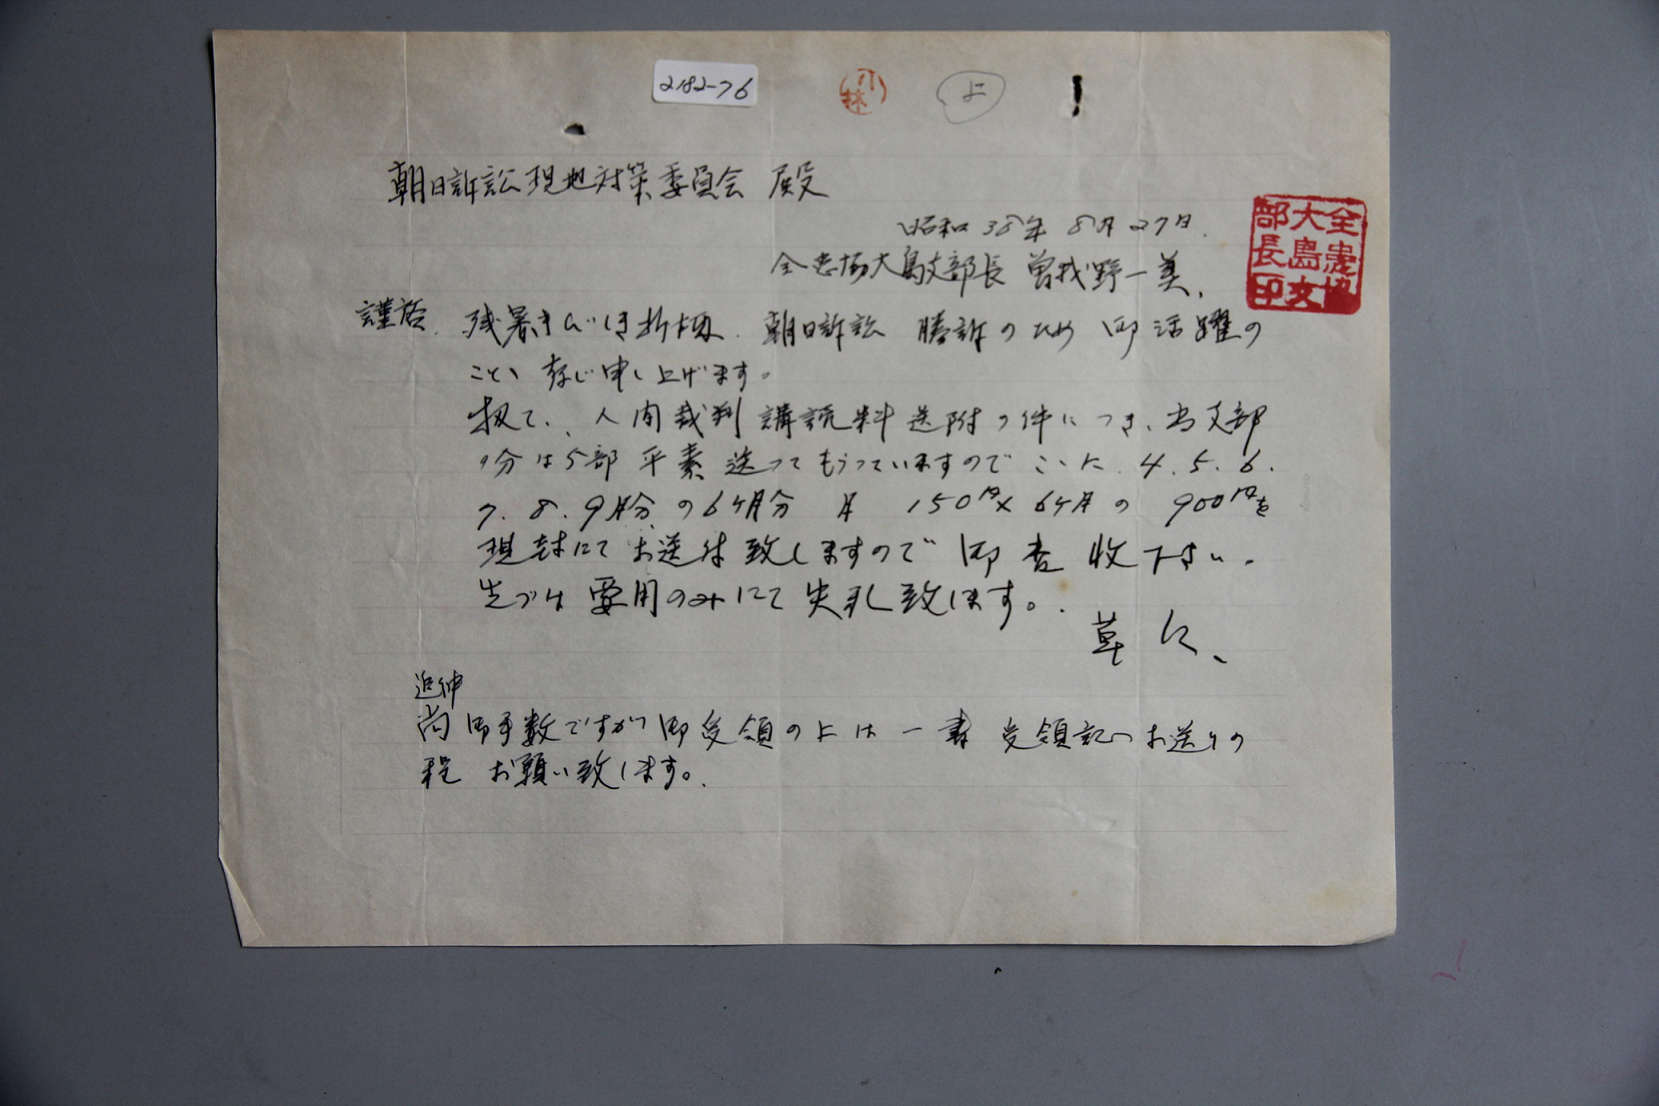 2182-76
小林
よ
朝日訴訟現地対策委員会 殿
昭和38年8月27日.
全患協大島支部長 曽我野一美、
全患協大島支部長印
謹啓. 残暑きびしき折柄. 朝日訴訟 勝訴のため 御活躍の
ことゝ存じ申し上げます。
扨て、人間裁判 購読料送附の件につき、当支部
分は5部 平素 送ってもらっていますので こゝに. 4. 5. 6.
7. 8. 9月分の6ヶ月分 月 150円×6ヶ月の 900円を
現封にてお送付致しますので 御査収下さい。
先づは 要用のみにて失礼致します。
草々、
追伸
尚御手数ですが御受領の上は一書 受領記 お送りの
程 お願い致します。